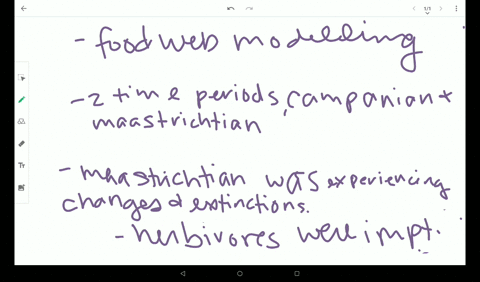 - food web modelling
- 2 time periods, campanian +
maastrichtian
- maastrichtian was experiencing
changes & extinctions.
- herbivores were impt.
1/1
Tr